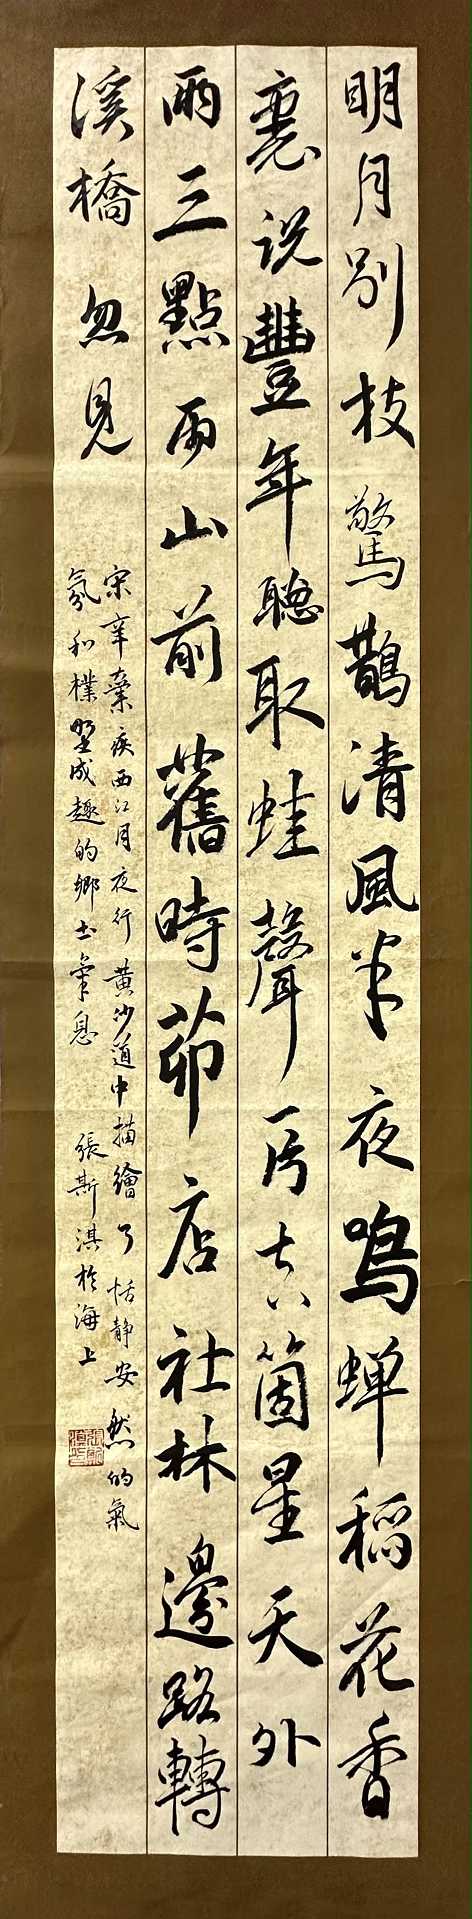 明月别枝驚鵲清風半夜鳴蝉稻花香
裏说豐年聽取蛙聲一片七八箇星天外
兩三點雨山前舊時茆店社林邊路轉
溪橋忽見
宋辛棄疾西江月夜行黄沙道中描繪了恬静安然的氣
氛和樸野成趣的鄉土氣息 張斯淇於海上